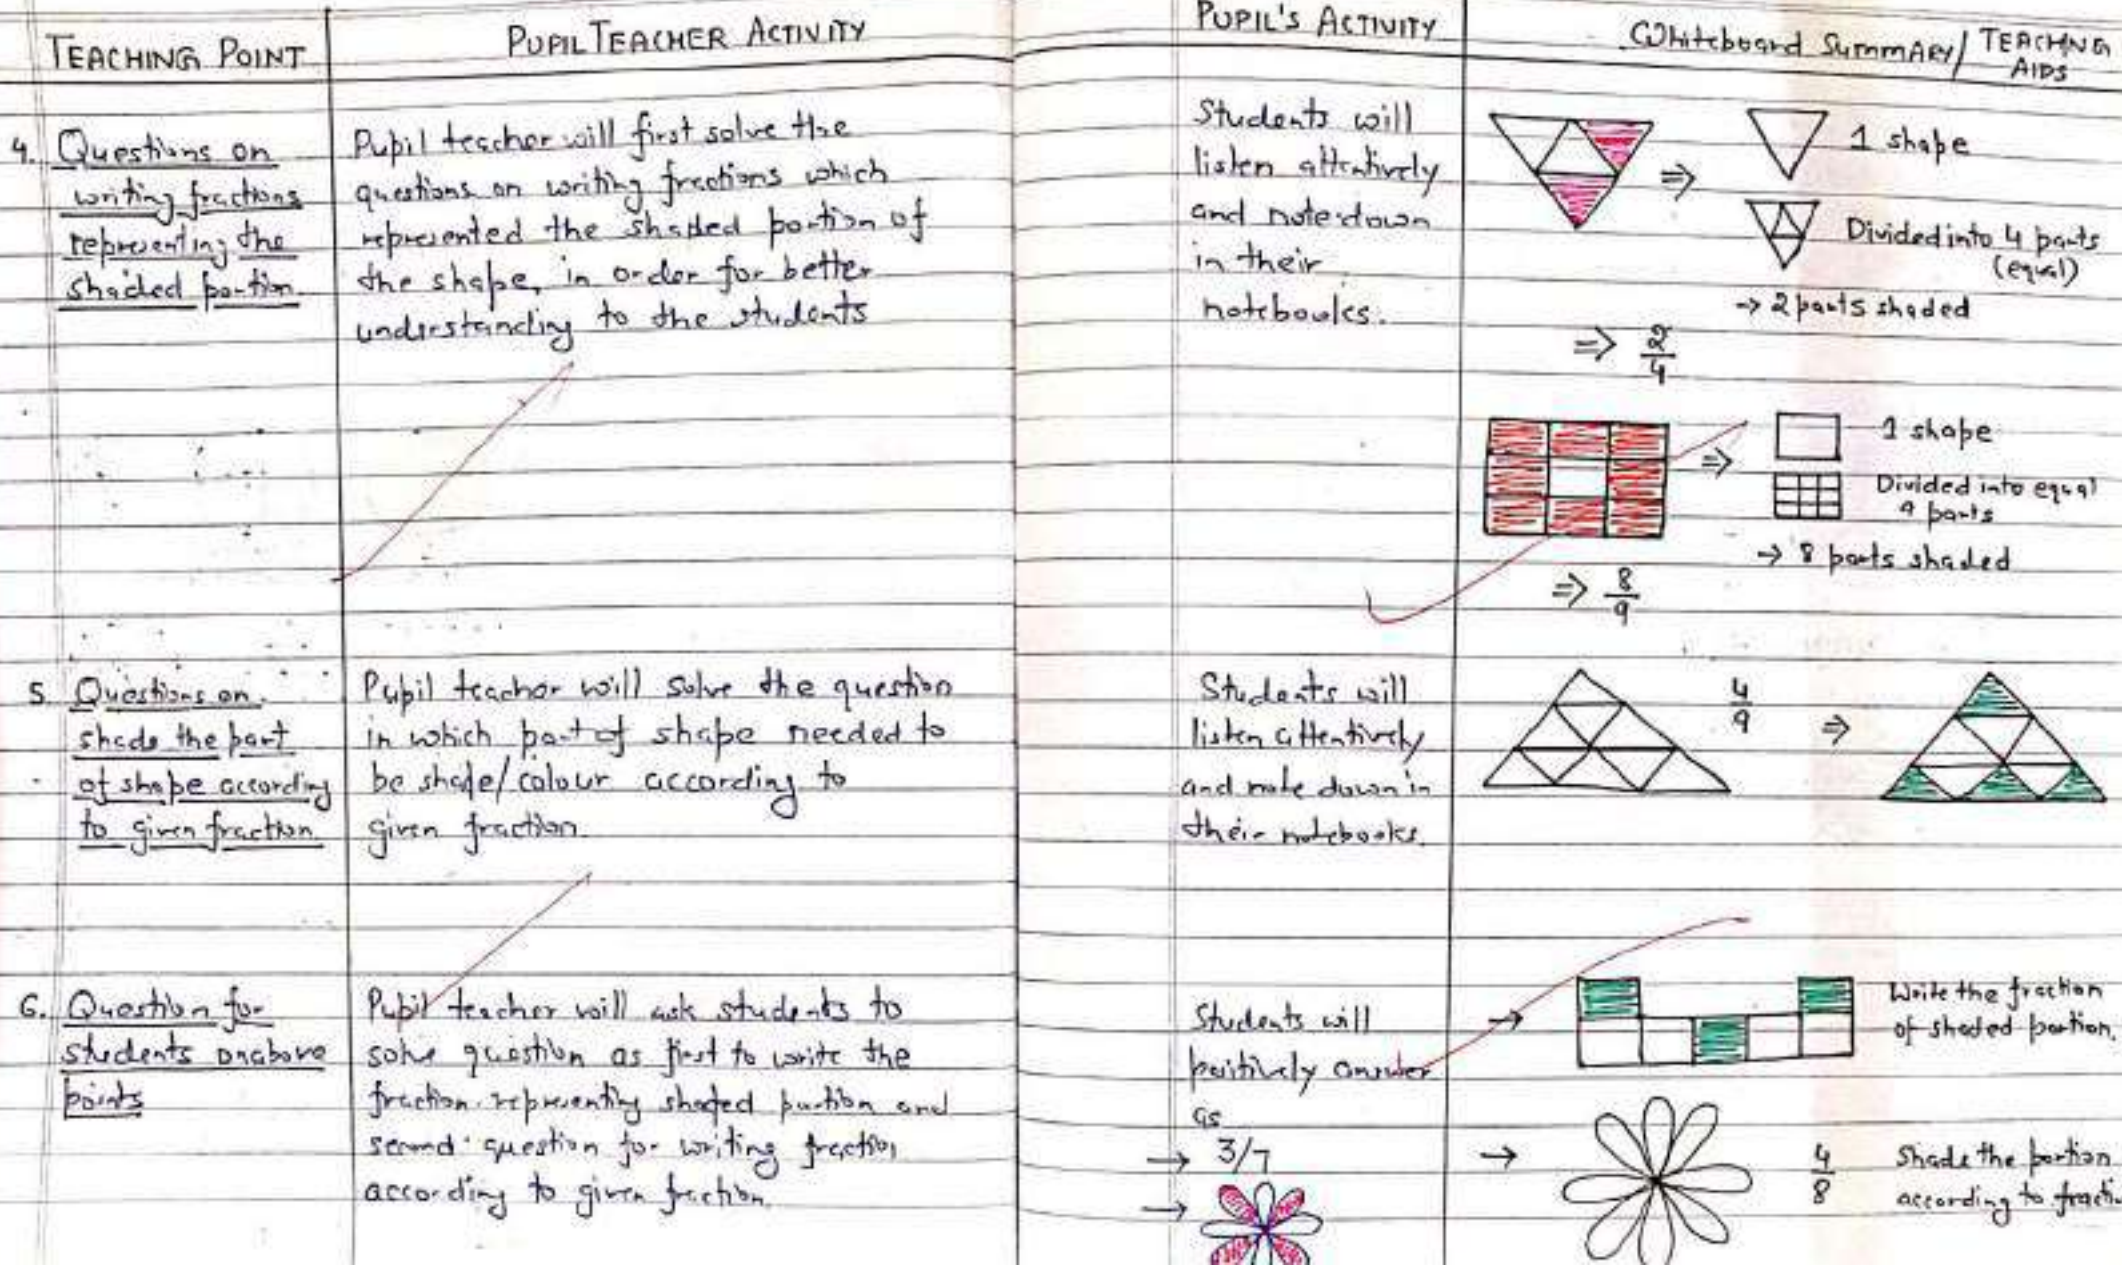 TEACHING POINT
PUPIL TEACHER ACTIVITY
PUPIL'S ACTIVITY
Whiteboard SUMMARY/ TEACHNG
AIDS
4. Questions on
writing fractions
representing the
shaded portion.
Pupil teacher will first solve the
questions on writing fractions which
represented the shaded portion of
the shape, in order for better
understanding to the students
Students will
listen attentively
and note down
in their
notebooks.
1 shape
Divided into 4 parts
(equal)
→ 2 parts shaded
⇒ 2/4
1 shape
Divided into equal
9 parts
→ 8 parts shaded
⇒ 8/9
5. Questions on
shade the part
of shape according
to given fraction
Pupil teacher will solve the question
in which part of shape needed to
be shade/colour according to
given fraction.
Students will
listen attentively
and note down in
their notebooks.
4/9 ⇒
6. Question for
students on above
points
Pupil teacher will ask students to
solve question as first to write the
fraction representing shaded portion and
second question for writing fraction
according to given fraction.
Students will
positively answer
as
→ 3/7
→
→ Write the fraction
of shaded portion.
→ 4/8 Shade the portion
according to